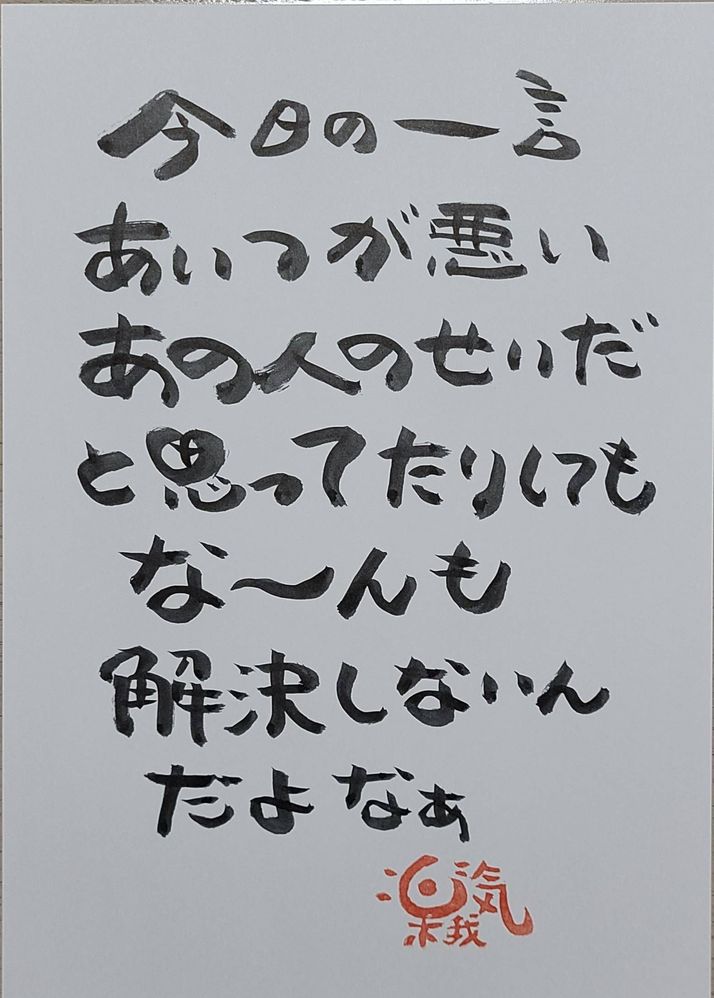 今日の一言
あいつが悪い
あの人のせいだ
と思ってたりしても
な〜んも
解決しないん
だよなぁ
楽気